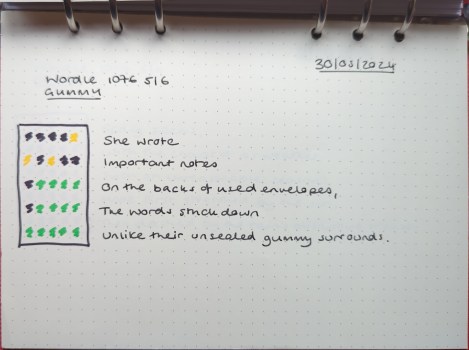 30/05/2024
Wordle 1076 5/6
GUMMY
She wrote
Important notes
On the backs of used envelopes,
The words stuck down
Unlike their unsealed gummy surrounds.